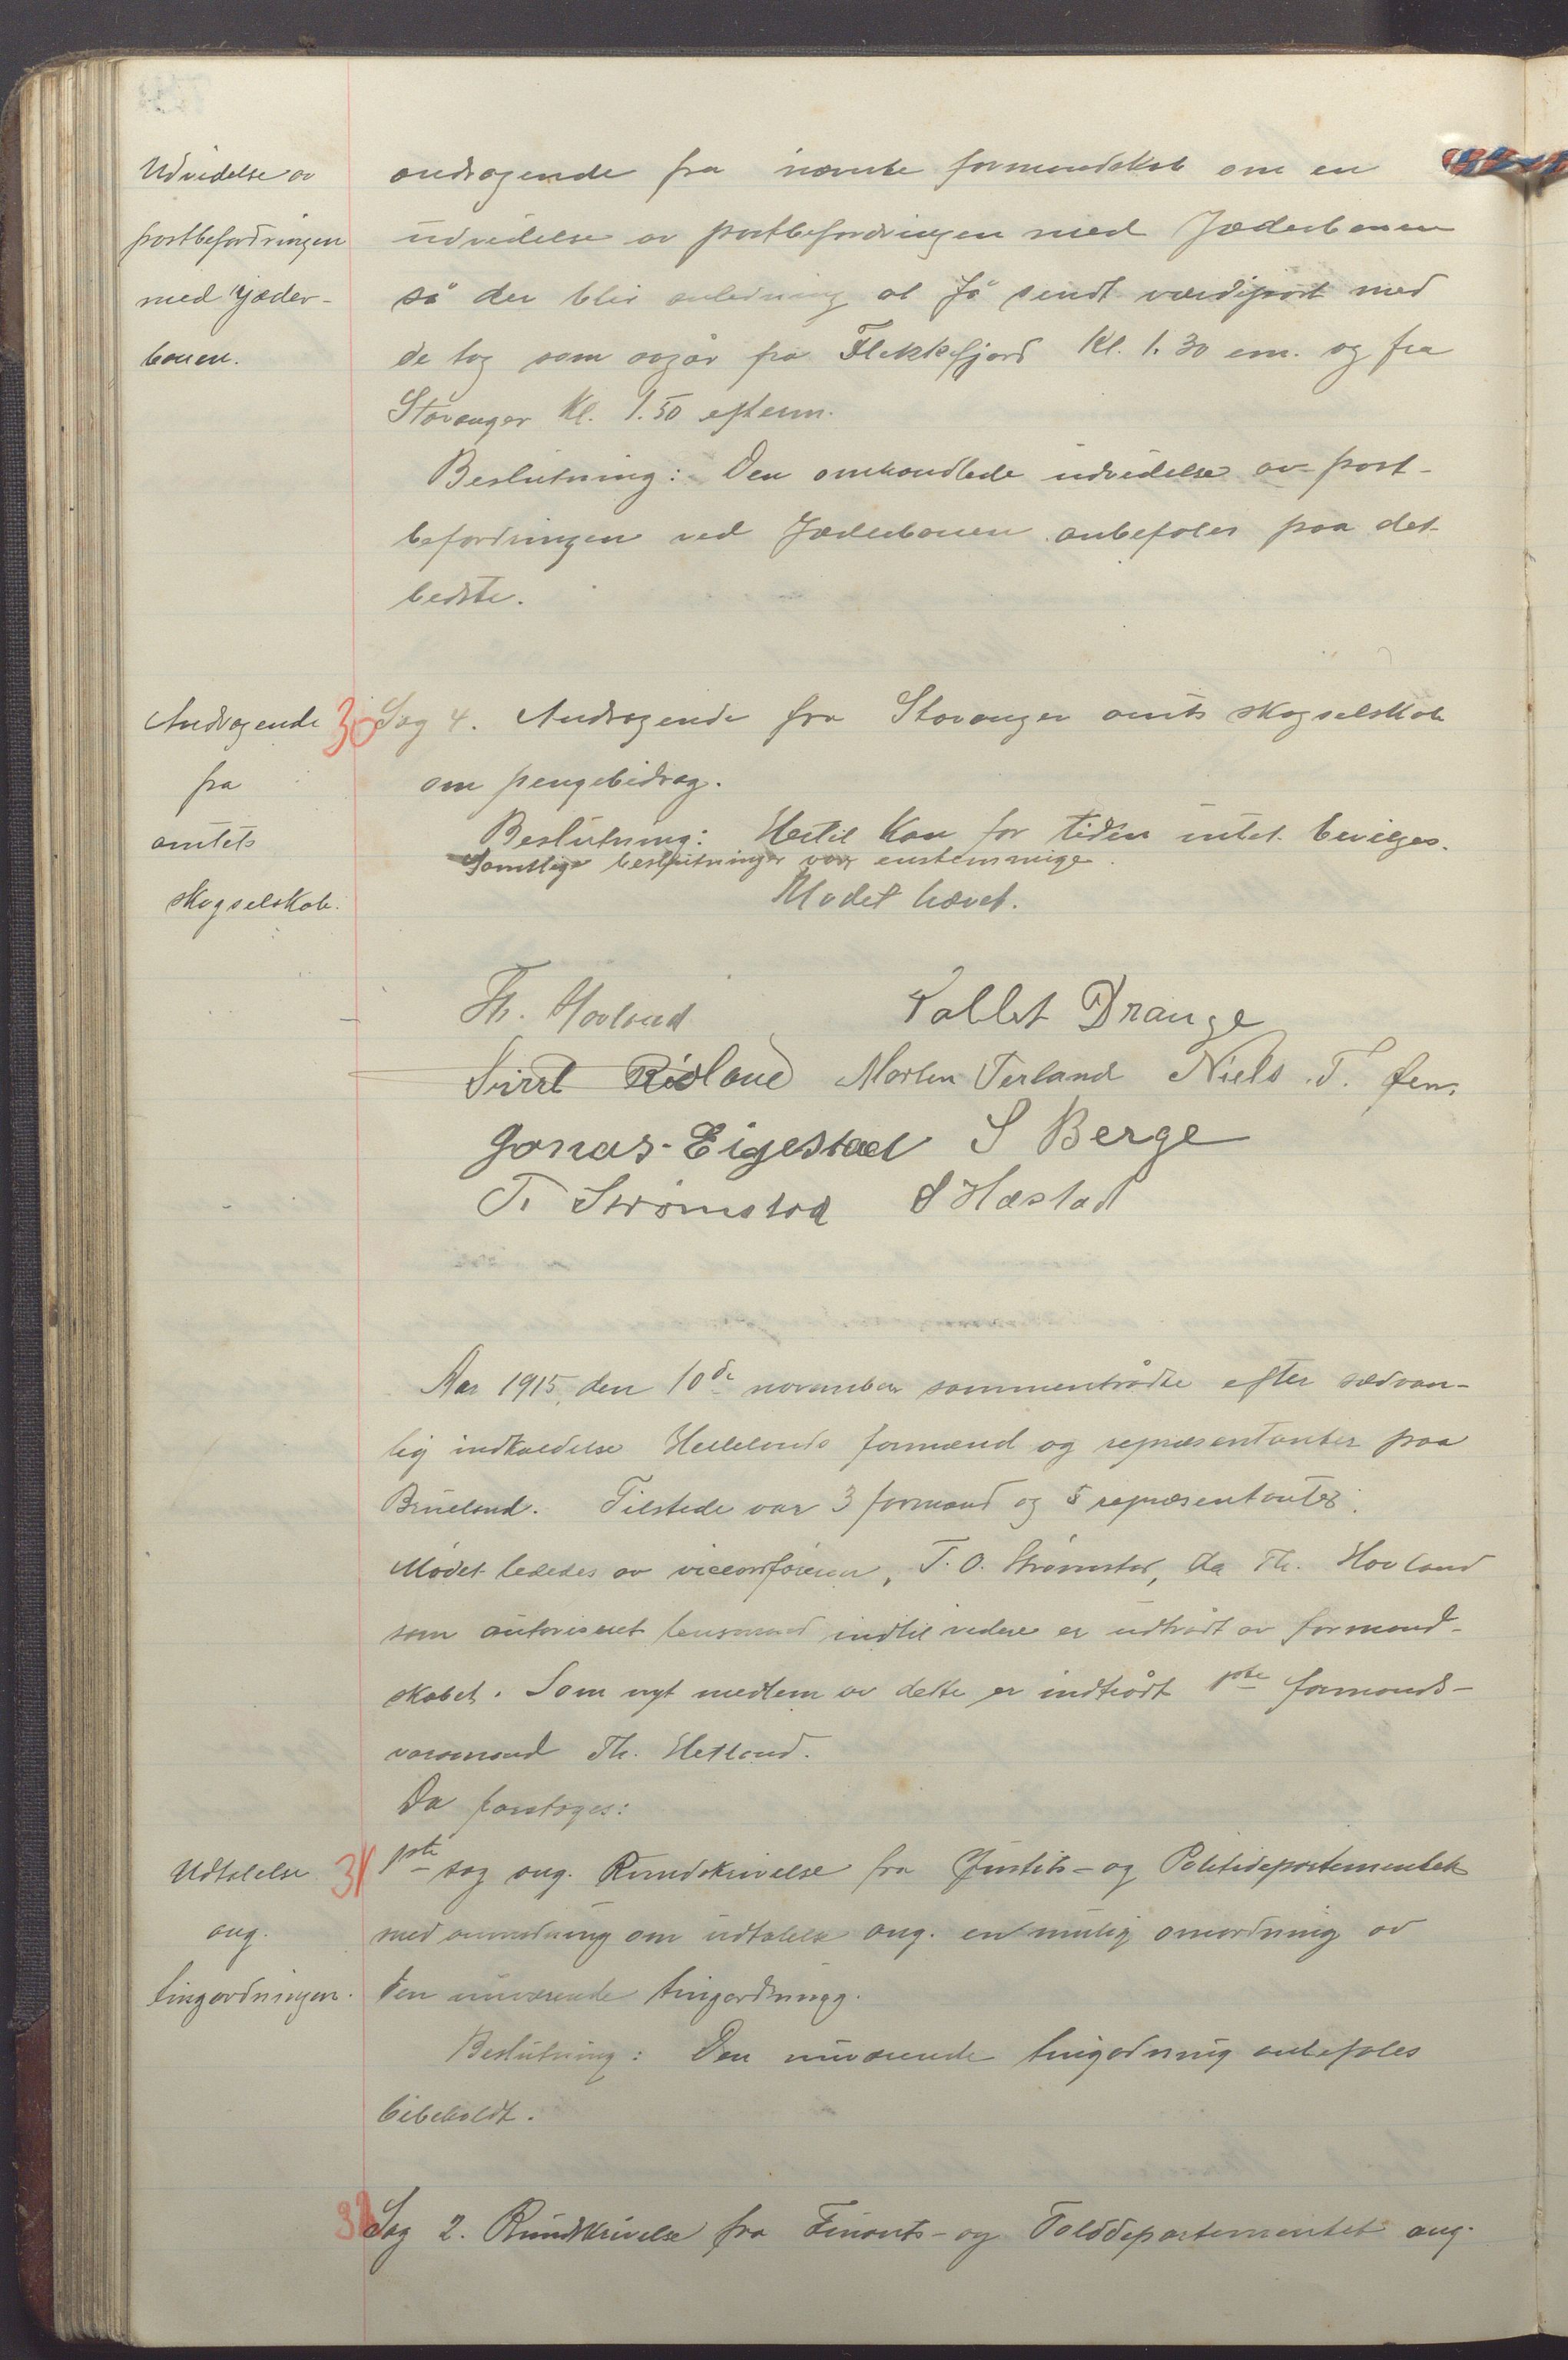 Udvidelse av
postbefordringen
med Jæder-
banen.
andragende fra nævnte formandskab om en
udvidelse av postbefordringen med Jæderbanen
så der blir anledning at få sendt værdipost med
de tog som avgår fra Flekkefjord Kl. 1.30 em. og fra
Stavanger Kl. 1.50 efterm.
Beslutning: Den omhandlede udvidelse av post-
befordringen ved Jæderbanen anbefales paa det
bedste.
Andragende
fra
amtets
skogselskab.
30 Sag 4. Andragende fra Stavanger amts skogselskab
om pengebidrag.
Beslutning: Hertil kan for tiden intet bevilges.
Samtlige beslutninger var enstemmige.
Mødet hævet.
Th. Hovland Tallet Drange
Sivert Ridland Morten Terland Niels T.
Jonas Eigestad S Berge
T. Strømstad S Hæstad
Aar 1915, den 10de november sammentrådte efter sædvan-
lig indkaldelse Hellelands formænd og repræsentanter paa
Brueland. Tilstede var 3 formænd og 8 repræsentanter.
Mødet lededes av viceordføreren, T. O. Strømstad, da Th. Hovland
som autoriseret lensmand indtil videre er udtrådt av formand-
skabet. Som nyt medlem av dette er indtrådt 1ste formands-
varamand Th. Hetland.
Da foretoges:
Udtalelse
ang.
tingordningen.
31 1ste sag ang. Rundskrivelse fra Justits- og Politidepartementet
med anmodning om udtalelse ang. en mulig omordning av
den nuværende tingordning.
Beslutning: Den nuværende tingordning anbefales
bibeholdt.
32 Sag 2. Rundskrivelse fra Finants- og Tolddepartementet ang.